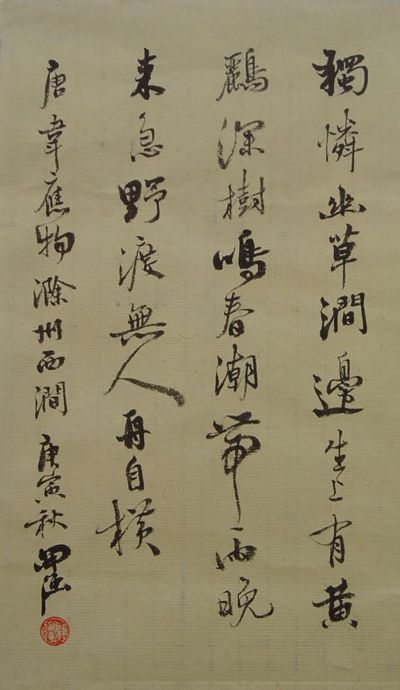 獨憐幽草澗邊生上有黃
鸝深樹鳴春潮帶雨晚
来急野渡無人舟自横
唐韋應物滁州西澗 庚寅秋